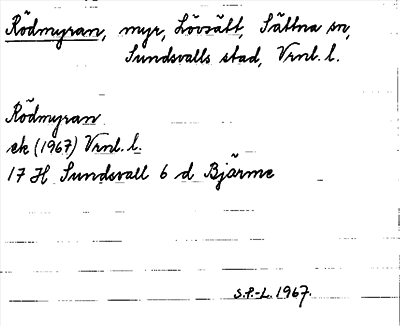 Rödmyran, myr, Lövsätt, Sättna sn,
Sundsvalls stad, Vrnl. l.
Rödmyran
ek (1967) Vrnl. l.
17 H Sundsvall 6 d Bjärme
S.P.-L. 1967.